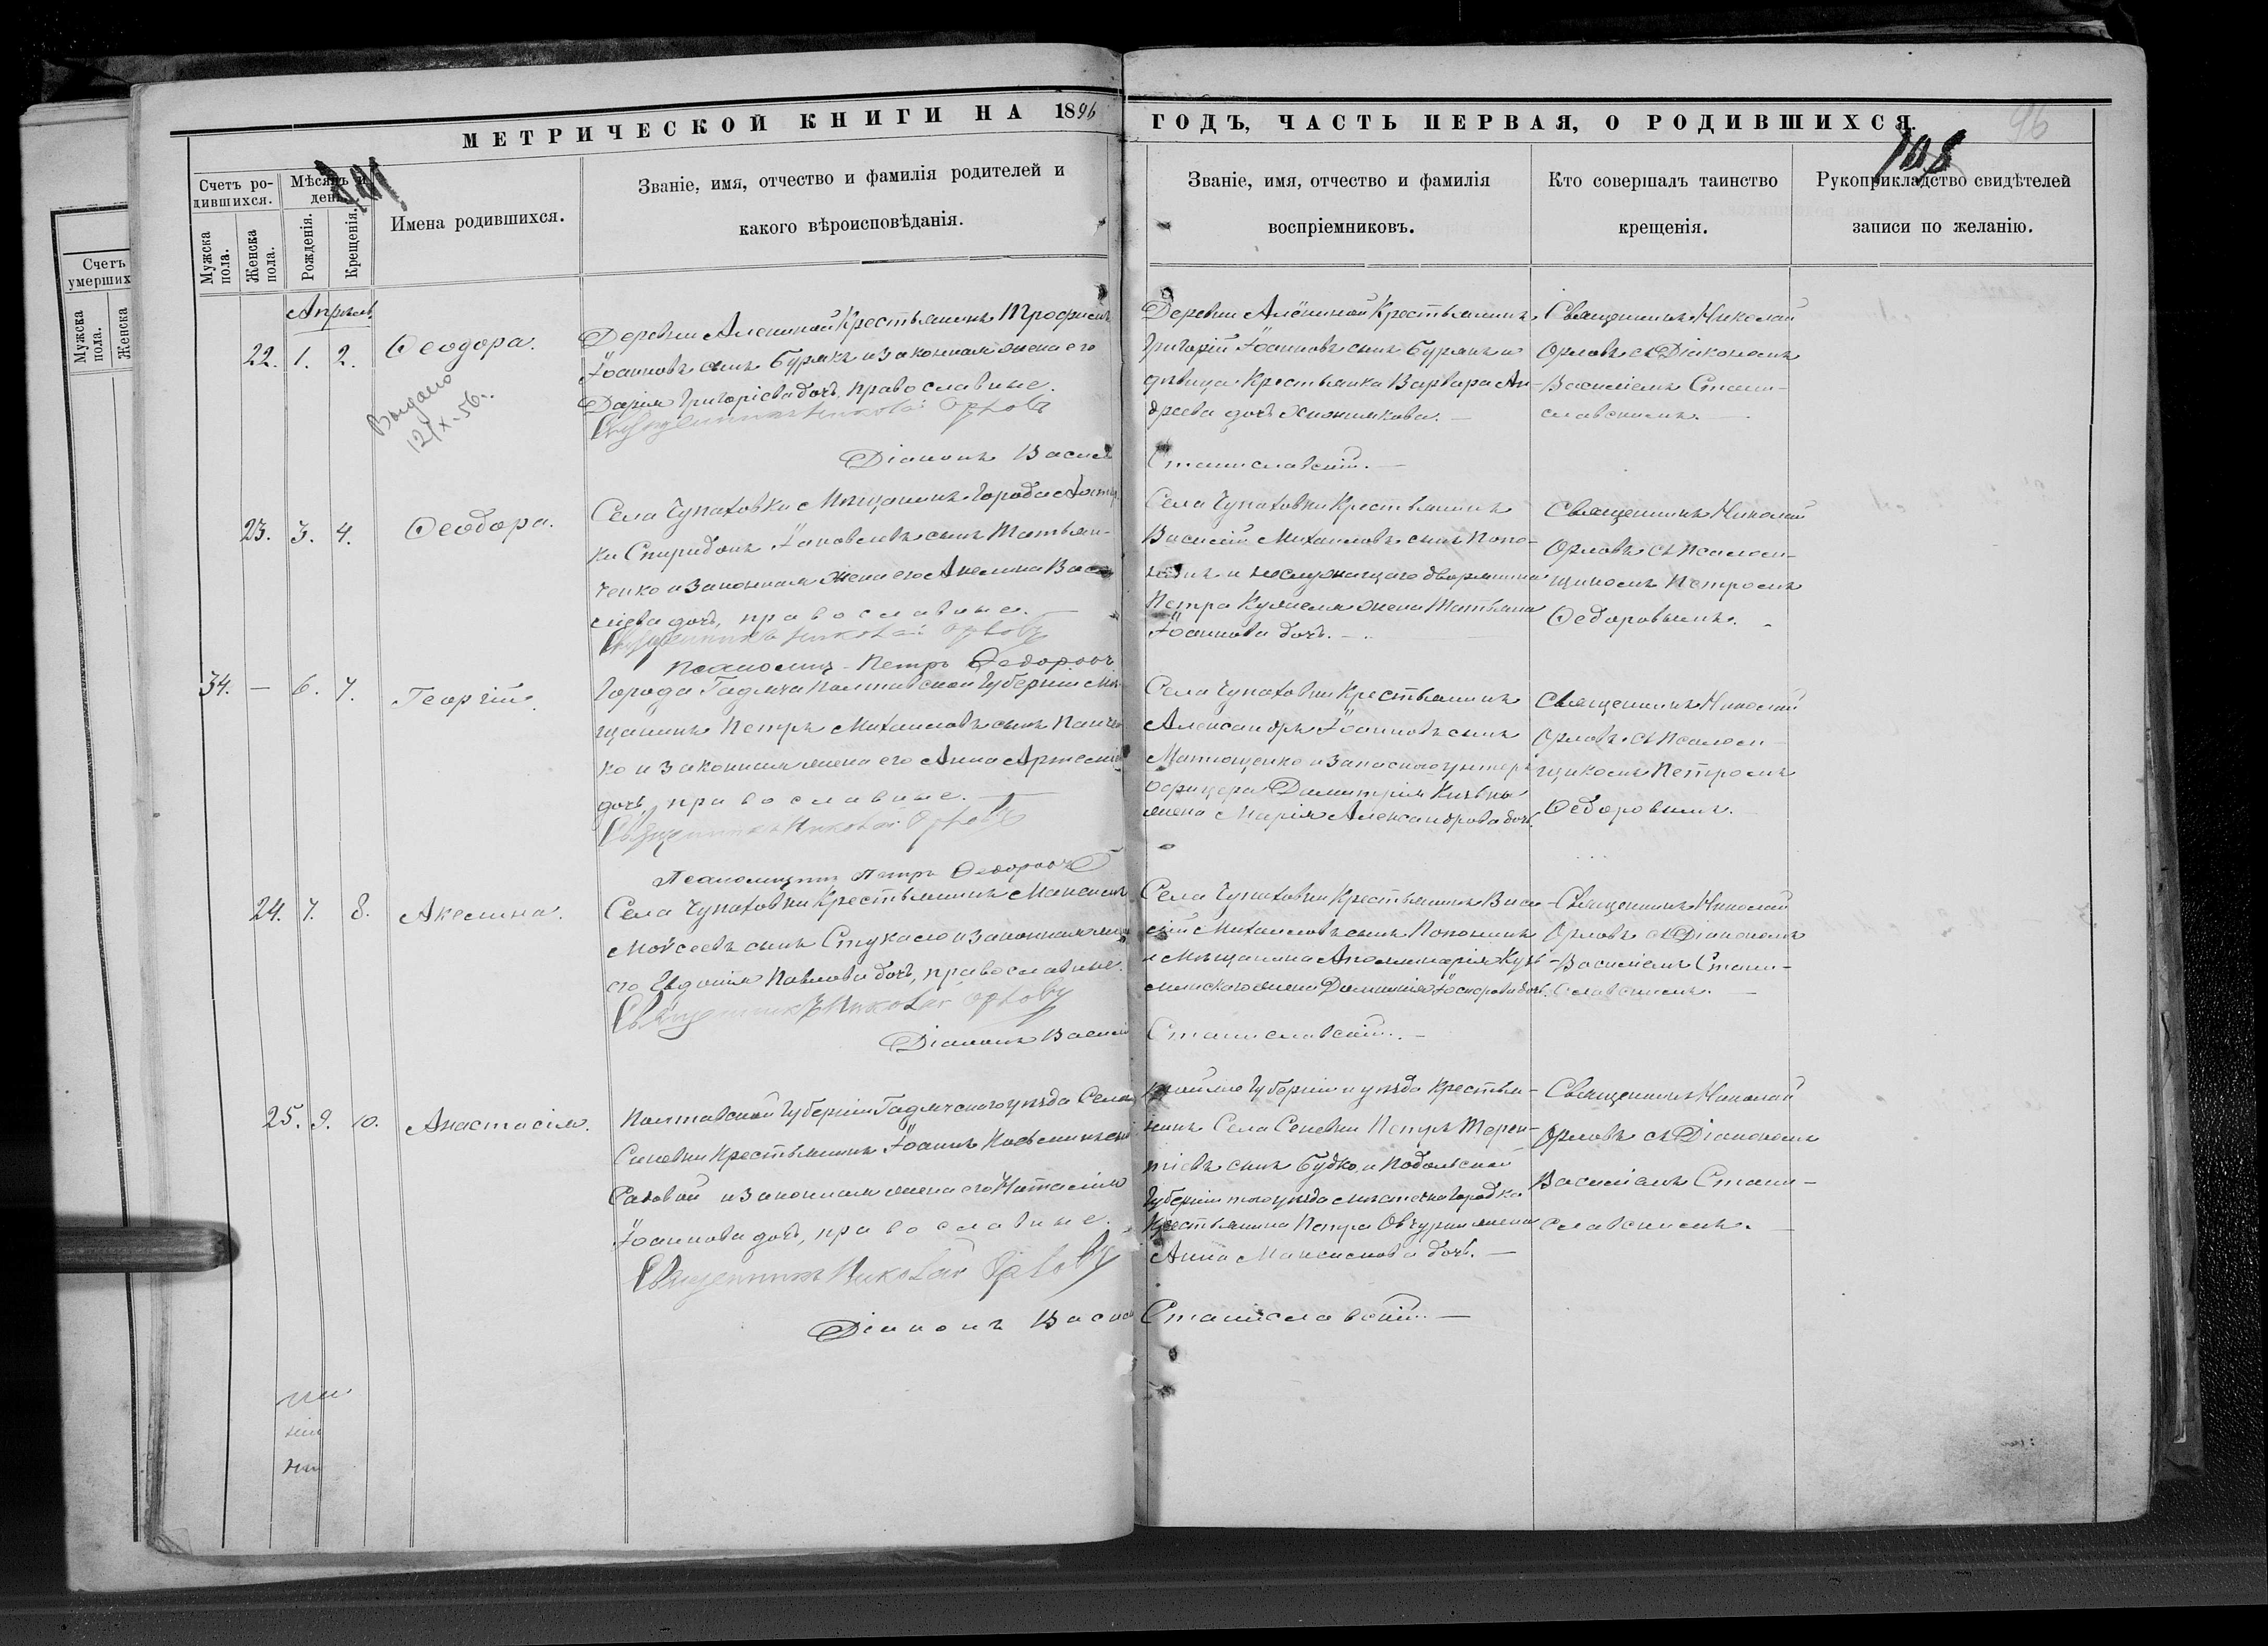 МЕТРИЧЕСКОЙ КНИГИ НА 1896
ГОДЪ, ЧАСТЬ ПЕРВАЯ, О РОДИВШИХСЯ.
96
108
Счетъ ро-
дившихся.
Мѣсяцъ и
день.
Мужска
пола.
Женска
пола.
Рожденія.
Крещенія.
Имена родившихся.
Званіе, имя, отчество и фамилія родителей и
какого вѣроисповѣданія.
Званіе, имя, отчество и фамилія
воспріемниковъ.
Кто совершалъ таинство
крещенія.
Рукоприкладство свидѣтелей
записи по желанію.
Счетъ
умерших
Мужска
пола.
Женска
Апрѣль
22. 1. 2. Ѳеодора.
Выдано
12/X-56.
Деревни Алениной Крестьянинъ Трофимъ
Іоанновъ сынъ Бурякъ и законная жена его
Дарія Григоріева дочь, православные.
Священникъ Николай Орловъ
Діаконъ Васил
Станиславскій.
Деревни Алёниной Крестьянинъ
Григорій Іоанновъ сынъ Бурякъ и
дѣвица Крестьянка Варвара Ан-
дреева дочь
Священникъ Николай
Орловъ съ Діакономъ
Василіемъ Стани-
славскимъ.
23. 3. 4. Ѳеодора.
Села Чупаховки Мѣщанинъ Города
ки Спиридонъ Іаковлевъ сынъ Татьян-
ченко и законная жена его Акелина Васи
сіева дочь, православные.
Священникъ Николай Орловъ
Псаломщ. Петръ Ѳедоров
Села Чупаховки Крестьянинъ
Василій Михаиловъ сынъ Поно-
и неслужащаго дворянина
Петра жена Татьяна
Іоаннова дочь.
Священникъ Николай
Орловъ съ Псалом-
щикомъ Петромъ
Ѳедоровымъ.
34. — 6. 7. Георгій.
Города Гадяча Полтавской Губерніи Мѣ
щанинъ Петръ Михаиловъ сынъ Панчен
ко и законная жена его Анна Артеміе
дочь, православные.
Священникъ Николай Орловъ
Псаломщикъ Петръ Ѳедоровъ
Села Чупаховки Крестьянинъ
Александръ Іоанновъ сынъ
Матющенко и запаснаго унтеръ
офицера Димитрія
жена Марія Александрова дочь.
Священникъ Николай
Орловъ съ Псалом-
щикомъ Петромъ
Ѳедоровымъ.
24. 7. 8. Акелина.
Села Чупаховки Крестьянинъ Максимъ
Моѵсеевъ сынъ Стукало и законная жена
его Евдокія Павлова дочь, православные.
Священникъ Николай Орловъ
Діаконъ Василій
Станиславскій.
Села Чупаховки Крестьянинъ Васи-
лій Михаиловъ сынъ Пономаръ
и Мѣщанина Аполлинарія Кузь-
минскаго жена Домникія дочь.
Священникъ Николай
Орловъ съ Діакономъ
Василіемъ Стани-
славскимъ.
25. 9. 10. Анастасія.
Полтавской Губерніи Гадячскаго уѣзда Села
Синевки Крестьянинъ Іоаннъ Косьминъ сынъ
Садовый и законная жена его Наталія
Іоаннова дочь, православные.
Священникъ Николай Орловъ
Діаконъ Васил
Станиславскій.
той же Губерніи и уѣзда Крестья-
нинъ Села Сеневки Петръ Терен-
тіевъ сынъ Будко, и Подольской
Губерніи того уѣзда мѣстечка Городка
Крестьянина Петра жена
Анна Максимова дочь.
Священникъ Николай
Орловъ съ Діакономъ
Василіемъ Стани-
славскимъ.